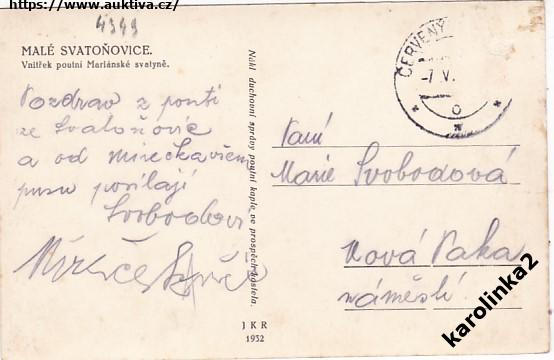 https://www.auktiva.cz/
4349
MALÉ SVATOŇOVICE.
Vnitřek poutní Mariánské svatyně.
Pozdrav z pouti
ze Svatoňovic
a od Mirečka všem
pusu posílají
Svobodovi
Nákl. duchovní správy poutní kaple, ve prospěch kostela.
JKR
1932
ČERVENÝ
-7.V.
Paní
Marie Svobodová
Nová Paka
náměstí.
karolinka2